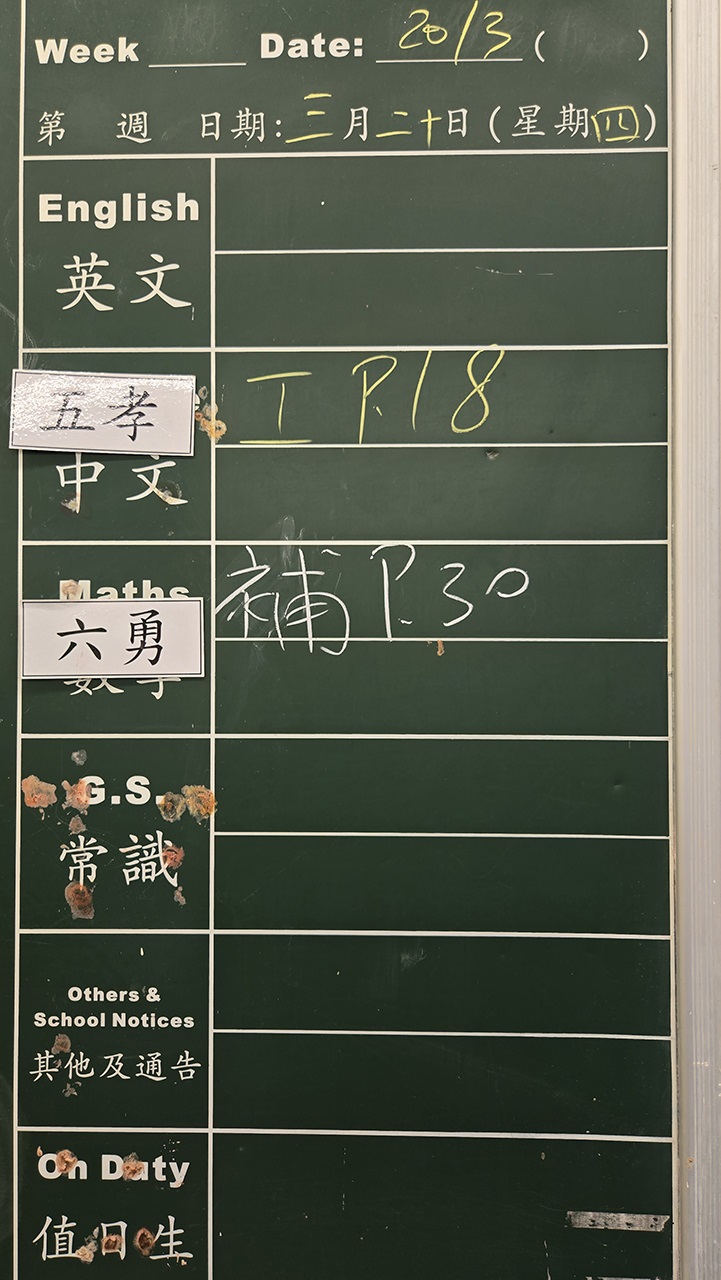 Week Date: 20/3 ( )
第 週 日期:三月二十日(星期四)
English
英文
五孝 工 P.18
中文
Maths
六勇 補 P.30
數學
G.S.
常識
Others &
School Notices
其他及通告
On Duty
值日生